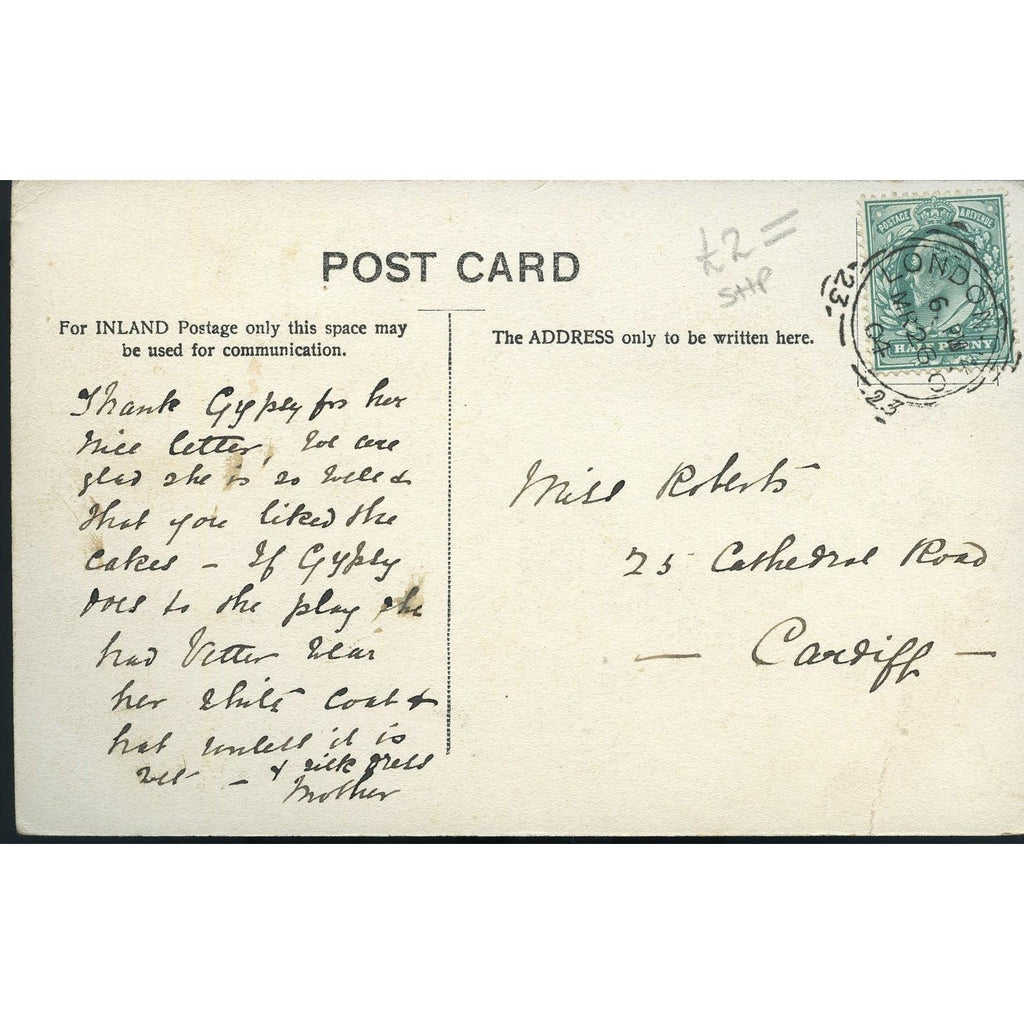 POST CARD
£2 =
SHP
POSTAGE & REVENUE
HALFPENNY
LONDON
6. PM
MR 26
04
23
23
For INLAND Postage only this space may
be used for communication.
The ADDRESS only to be written here.
Thank Gypsy for her
nice letter, We are
glad she is so well &
that you liked the
cakes – If Gypsy
goes to the play she
had better wear
her white coat &
hat unless it is
wet – & silk dress
Mother
Miss Roberts
25 Cathedral Road
— Cardiff —